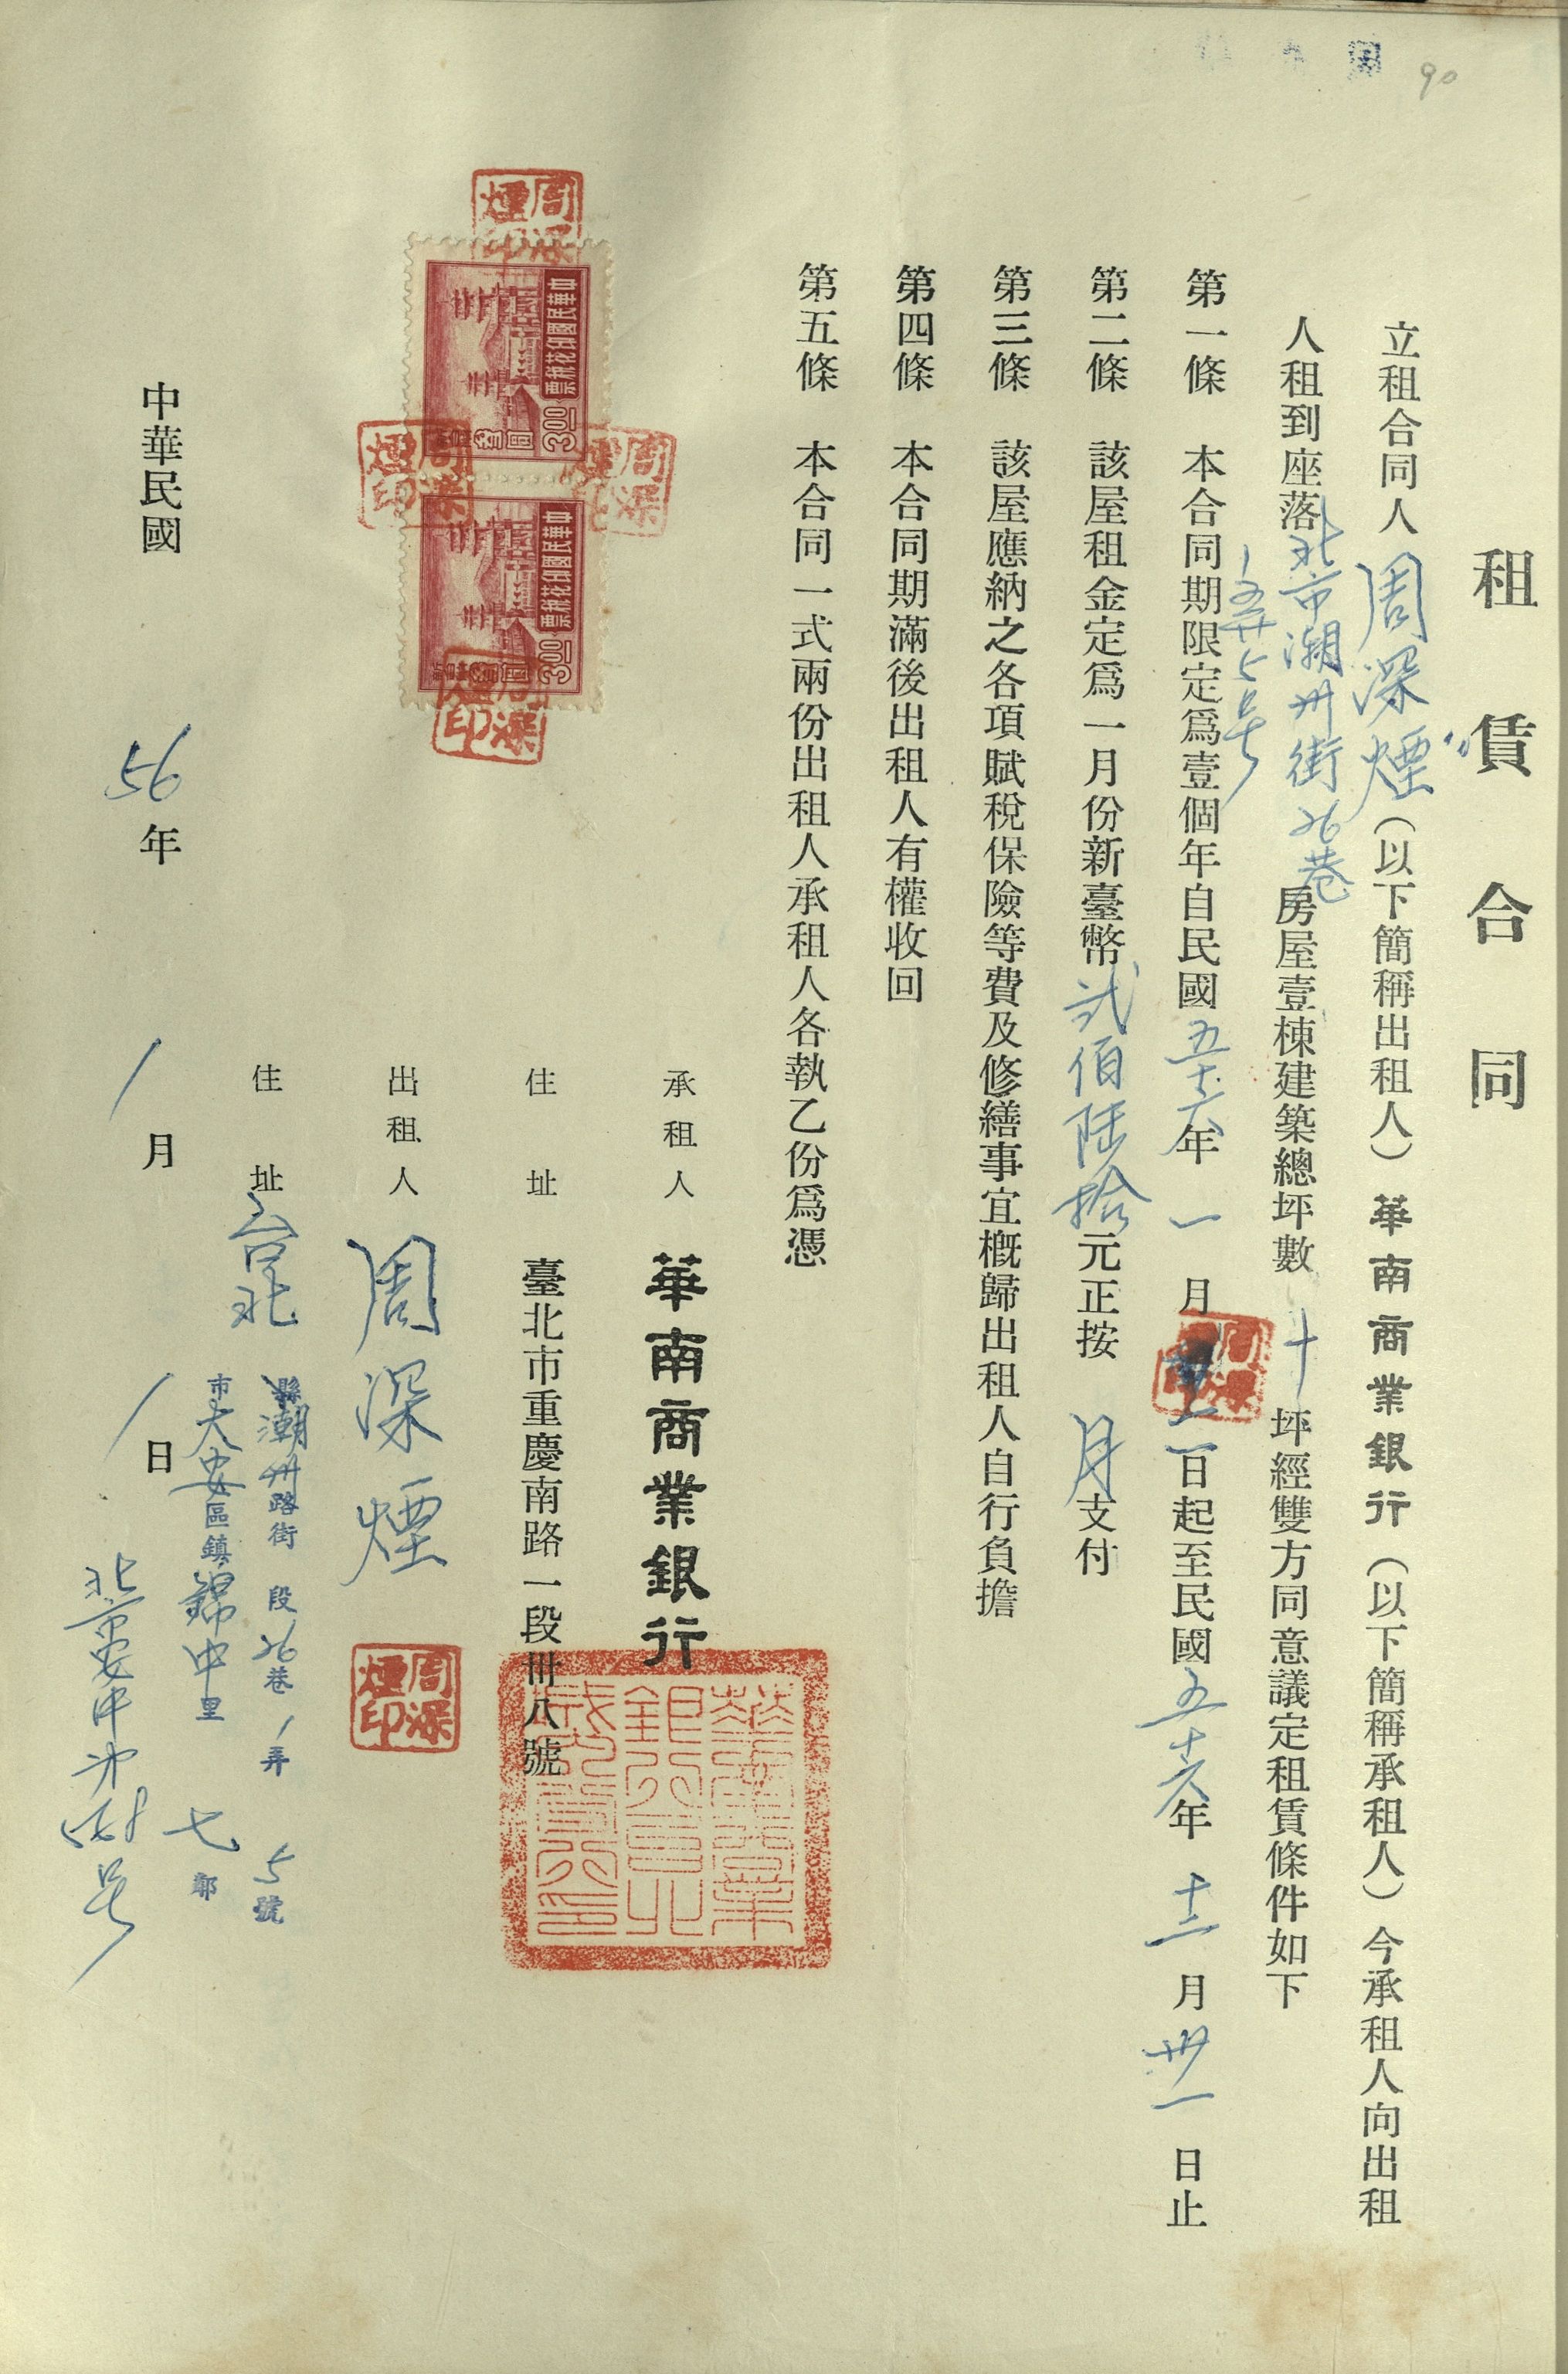 90
租賃合同
立租合同人周深煙(以下簡稱出租人)華南商業銀行(以下簡稱承租人)今承租人向出租
人租到座落北市潮州街26巷
1弄5号
房屋壹棟建築總坪數十坪經雙方同意議定租賃條件如下
第一條 本合同期限定爲壹個年自民國五十六年一月一日起至民國五十六年十二月卅一日止
第二條 該屋租金定爲一月份新臺幣弍佰陸拾元正按月支付
第三條 該屋應納之各項賦稅保險等費及修繕事宜概歸出租人自行負擔
第四條 本合同期滿後出租人有權收回
第五條 本合同一式兩份出租人承租人各執乙份爲憑
中華民國印花稅票
3.00
中華民國印花稅票
3.00
周深煙印
承租人 華南商業銀行
住址 臺北市重慶南路一段卅八號
出租人 周深煙
周深煙印
住址 台北
縣潮州路街 段26巷1弄 5號
市大安區鎮錦中里 七鄰
中華民國 56年 1月 1日